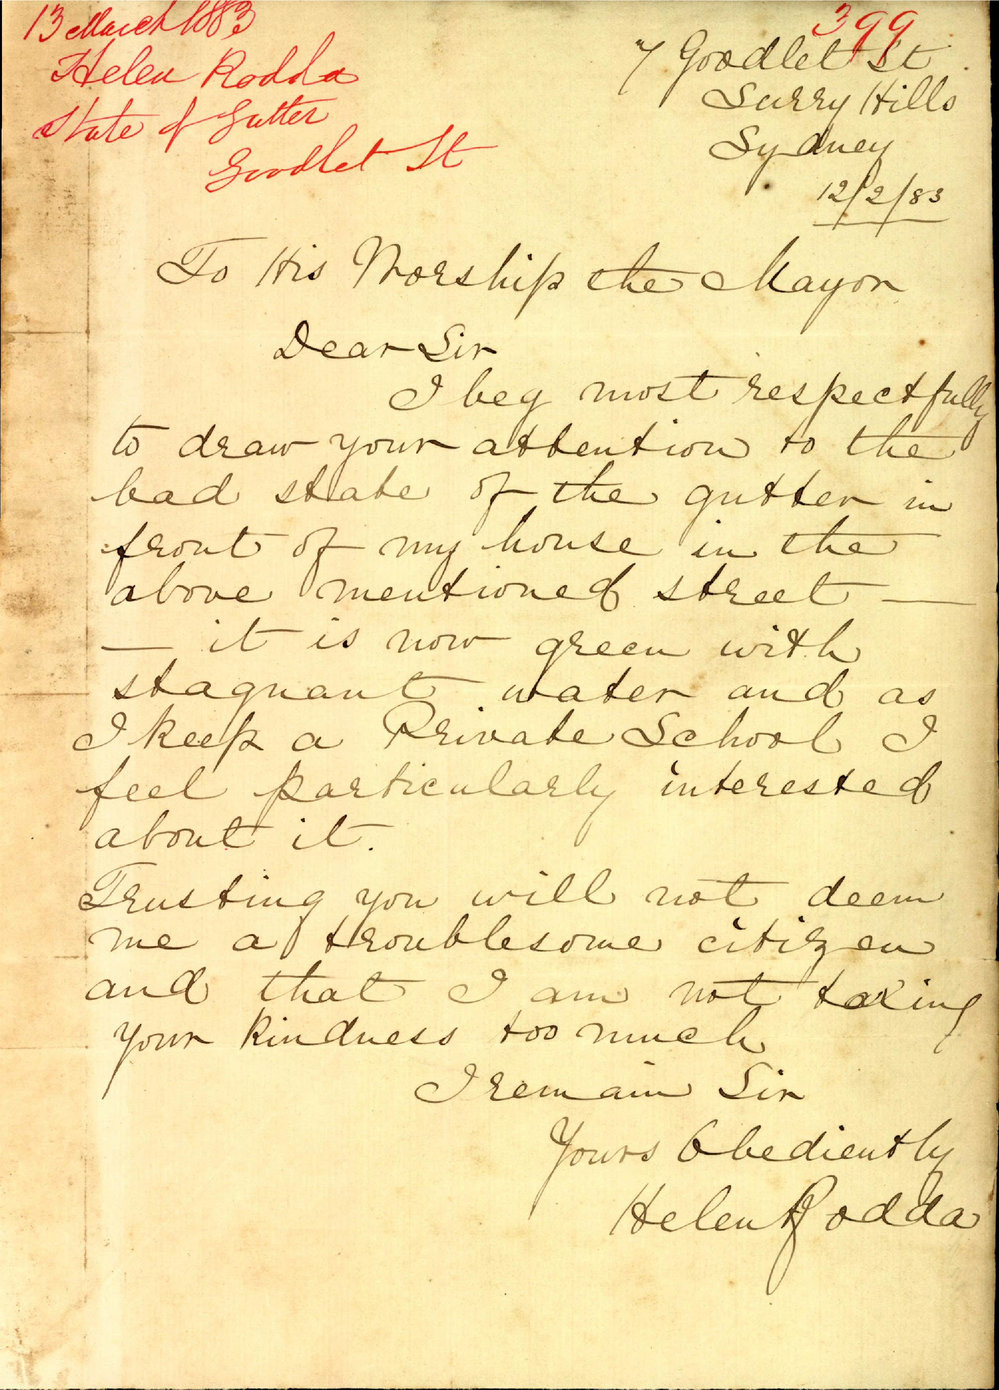 13 March 1883
Helen Rodda
State of Gutter
Goodlet St
399
7 Goodlet St.
Surry Hills
Sydney
12/2/83
To His Worship the Mayor
Dear Sir
I beg most respectfully
to draw your attention to the
bad state of the gutter in
front of my house in the
above mentioned street —
— it is now green with
stagnant water and as
I keep a Private School I
feel particularly interested
about it.
Trusting you will not deem
me a troublesome citizen
and that I am not taxing
your kindness too much
I remain Sir
Yours Obediently
Helen Rodda